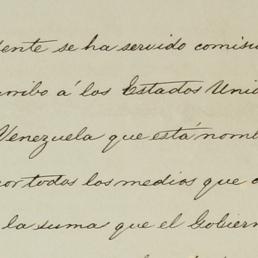 dente se ha servido comisi
arribo á los Estados Unid
Venezuela que está nomb
por todos los medios que
la suma que el Gobiern